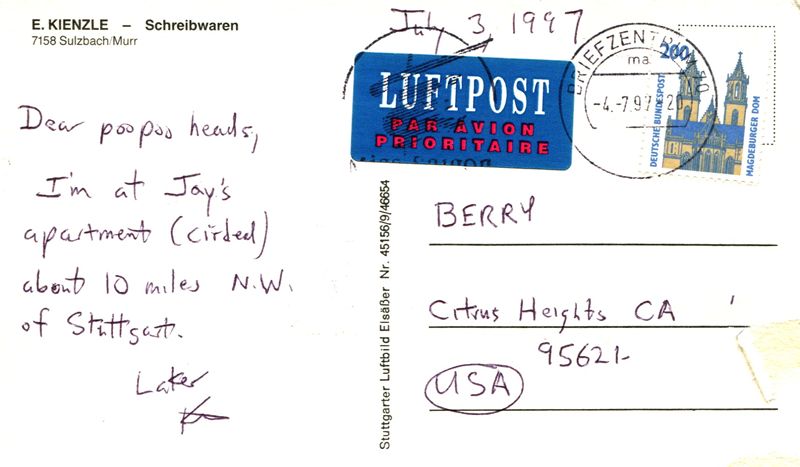 E. KIENZLE – Schreibwaren
7158 Sulzbach/Murr
July 3, 1997
LUFTPOST
PAR AVION
PRIORITAIRE
BRIEFZENTRUM 70
ma
-4.-7.97
20
200
DEUTSCHE BUNDESPOST
MAGDEBURGER DOM
Dear poopoo heads,
I'm at Jay's
apartment (circled)
about 10 miles N.W.
of Stuttgart.
Later
Stuttgarter Luftbild Elsäßer Nr. 45156/9/46654
BERRY
Citrus Heights CA
95621-
USA